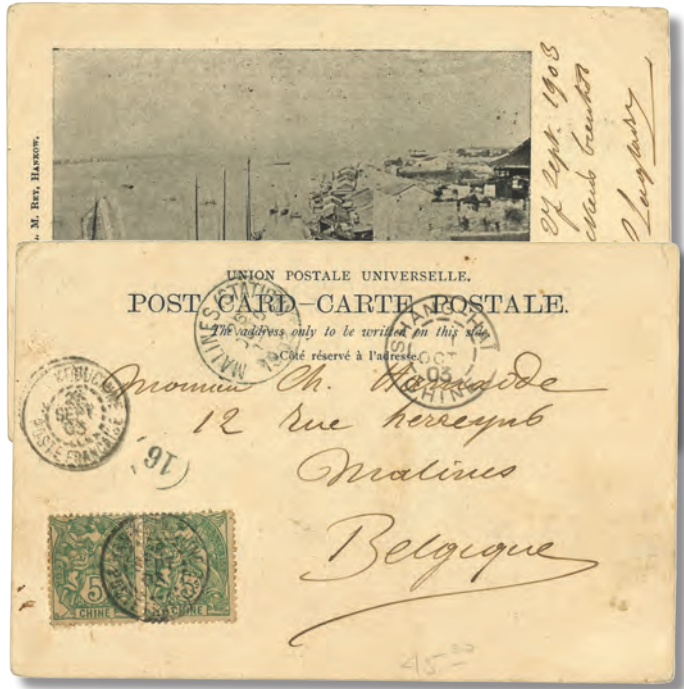 M. REY, HANKOW.
27 Sept. 1903
UNION POSTALE UNIVERSELLE.
POST CARD–CARTE POSTALE.
The address only to be written on this side.
Côté réservé à l'adresse.
MALINES STATION
SHANG-HAI
OCT
03
CHINE
POSTE FRANÇAISE
SEPT
03
16
Ch.
12 rue
Malines
Belgique
5
CHINE
CHINE
45.00